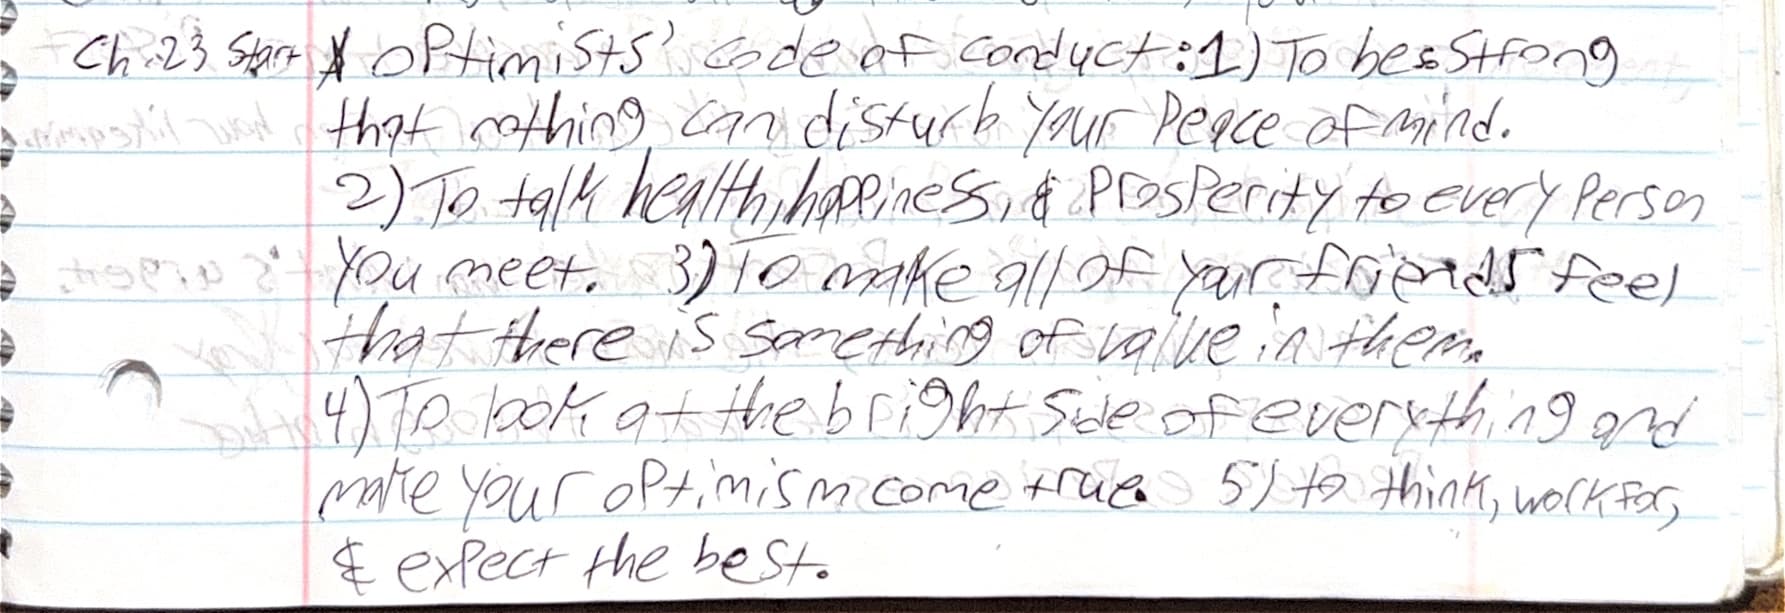 Ch. 23 Start optimists' code of conduct: 1) To be so strong
that nothing can disturb your peace of mind.
2) To talk health, happiness, & prosperity to every person
you meet. 3) To make all of your friends feel
that there is something of value in them.
4) To look at the bright side of everything and
make your optimism come true. 5) to think, work for,
& expect the best.